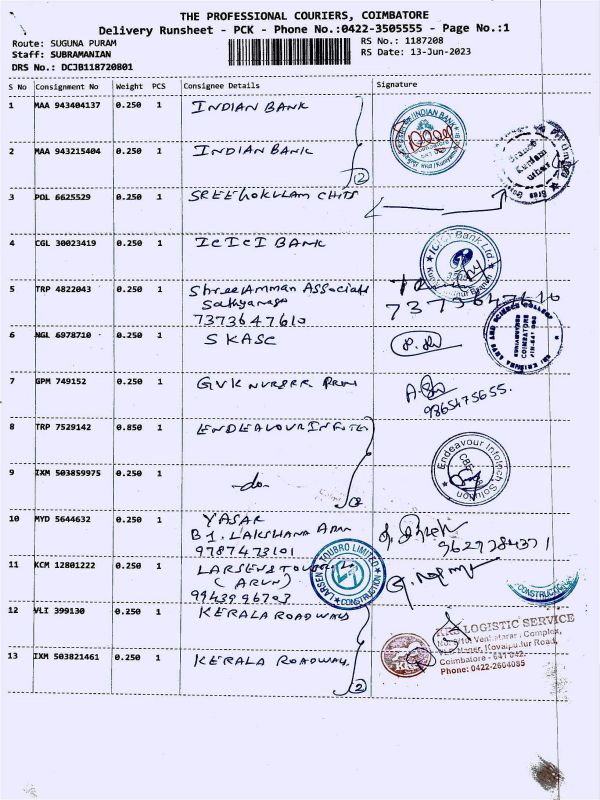 THE PROFESSIONAL COURIERS, COIMBATORE
Delivery Runsheet - PCK - Phone No.:0422-3505555 - Page No.:1
Route: SUGUNA PURAM
RS No.: 1187208
Staff: SUBRAMANIAN
RS Date: 13-Jun-2023
DRS No.: DCJB118720801
S No Consignment No Weight PCS Consignee Details Signature
1 MAA 943404137 0.250 1 INDIAN BANK
INDIAN BANK
2 MAA 943215404 0.250 1 INDIAN BANK
2
3 POL 6625529 0.250 1 SREEGOKULAM CHITS
4 CGL 30023419 0.250 1 ICICI BANK
ICICI Bank Ltd
5 TRP 4822043 0.250 1 Shree Amman Associate
7373647610
7373647610
6 NGL 6978710 0.250 1 SKASC
SRI KRISHNA ARTS AND SCIENCE COLLEGE
COIMBATORE
7 GPM 749152 0.250 1 GVK
9865475655.
8 TRP 7529142 0.850 1 ENDEAVOUR INFOTE
Endeavour Infotech Solution
9 IXM 503859975 0.250 1 -do-
10 MYD 5644632 0.250 1 YASAR
B1. LAKSHANA
9787473101
11 KCM 12801222 0.250 1 LARSEN & TOUBRO
(ARUN)
9943996703
LARSEN & TOUBRO LIMITED
CONSTRUCTION
CONSTRUCTION
12 VLI 399130 0.250 1 KERALA ROADWAYS
LOGISTIC SERVICE
Complex,
Kovaipudur Road,
Coimbatore - 641 042.
Phone: 0422-2604085
13 IXM 503821461 0.250 1 KERALA ROADWAY.
2